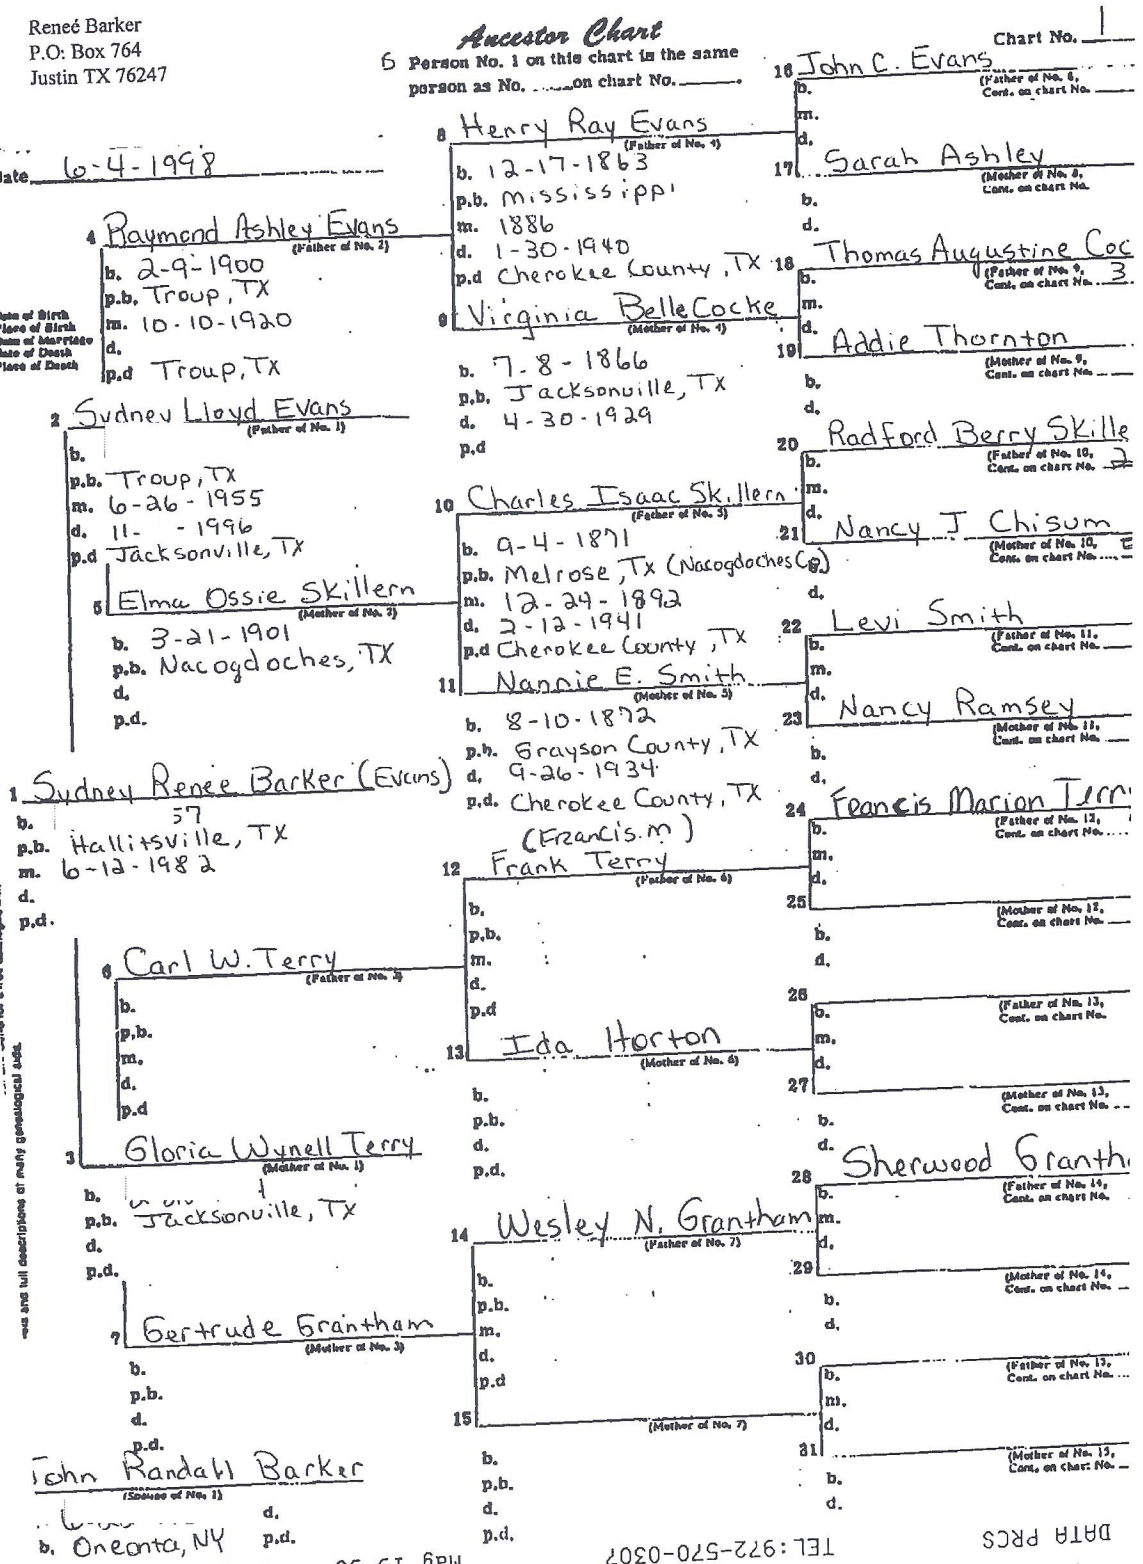 Reneé Barker
P.O: Box 764
Justin TX 76247
Ancestor Chart
Chart No. 1
5 Person No. 1 on this chart is the same
person as No. ____ on chart No. ____.
Date 6-4-1998
Date of Birth
Place of Birth
Date of Marriage
Date of Death
Place of Death
1 Sydney Renee Barker (Evans)
b. 57
p.b. Hallitsville, TX
m. 6-12-1982
d.
p.d.
2 Sydney Lloyd Evans
(Father of No. 1)
b.
p.b. Troup, TX
m. 6-26-1955
d. 11- -1996
p.d Jacksonville, TX
3 Gloria Wynell Terry
(Mother of No. 1)
b.
p.b. Jacksonville, TX
d.
p.d.
4 Raymond Ashley Evans
(Father of No. 2)
b. 2-9-1900
p.b. Troup, TX
m. 10-10-1920
d.
p.d Troup, TX
5 Elma Ossie Skillern
(Mother of No. 2)
b. 3-21-1901
p.b. Nacogdoches, TX
d.
p.d.
6 Carl W. Terry
(Father of No. 3)
b.
p.b.
m.
d.
p.d
7 Gertrude Grantham
(Mother of No. 3)
b.
p.b.
d.
p.d.
John Randall Barker
(Spouse of No. 1)
d.
b. Oneonta, NY p.d.
8 Henry Ray Evans
(Father of No. 4)
b. 12-17-1863
p.b. Mississippi
m. 1886
d. 1-30-1940
p.d Cherokee County, TX
9 Virginia Belle Cocke
(Mother of No. 4)
b. 7-8-1866
p.b. Jacksonville, TX
d. 4-30-1929
p.d
10 Charles Isaac Skillern
(Father of No. 5)
b. 9-4-1871
p.b. Melrose, TX (Nacogdoches Co)
m. 12-24-1892
d. 2-12-1941
p.d Cherokee County, TX
11 Nannie E. Smith
(Mother of No. 5)
b. 8-10-1872
p.b. Grayson County, TX
d. 9-26-1934
p.d. Cherokee County, TX
(Francis. m)
12 Frank Terry
(Father of No. 6)
b.
p.b.
m.
d.
p.d
13 Ida Horton
(Mother of No. 6)
b.
p.b.
d.
p.d.
14 Wesley N. Grantham
(Father of No. 7)
b.
p.b.
m.
d.
p.d
15
(Mother of No. 7)
b.
p.b.
d.
p.d.
16 John C. Evans
(Father of No. 8,
Cont. on chart No.
b.
m.
d.
17 Sarah Ashley
(Mother of No. 8,
Cont. on chart No.
b.
d.
18 Thomas Augustine Coc
(Father of No. 9,
Cont. on chart No. 3
b.
m.
d.
19 Addie Thornton
(Mother of No. 9,
Cont. on chart No.
b.
d.
20 Radford Berry Skille
(Father of No. 10,
Cont. on chart No. 2
b.
m.
d.
21 Nancy J Chisum
(Mother of No. 10,
Cont. on chart No.
d.
22 Levi Smith
(Father of No. 11,
Cont. on chart No.
b.
m.
d.
23 Nancy Ramsey
(Mother of No. 11,
Cont. on chart No.
b.
d.
24 Francis Marion Terr
(Father of No. 12,
Cont. on chart No.
b.
m.
d.
25
(Mother of No. 12,
Cont. on chart No.
b.
d.
26
(Father of No. 13,
Cont. on chart No.
b.
m.
d.
27
(Mother of No. 13,
Cont. on chart No.
b.
d.
28 Sherwood Granth
(Father of No. 14,
Cont. on chart No.
b.
m.
d.
29
(Mother of No. 14,
Cont. on chart No.
b.
d.
30
(Father of No. 15,
Cont. on chart No.
b.
m.
d.
31
(Mother of No. 15,
Cont. on chart No.
b.
d.
and full descriptions of many genealogical aids.
DATA PRCS
TEL:972-570-0307
May 15